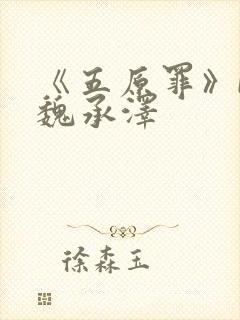 《五原罪》
魏承泽
徐森玉